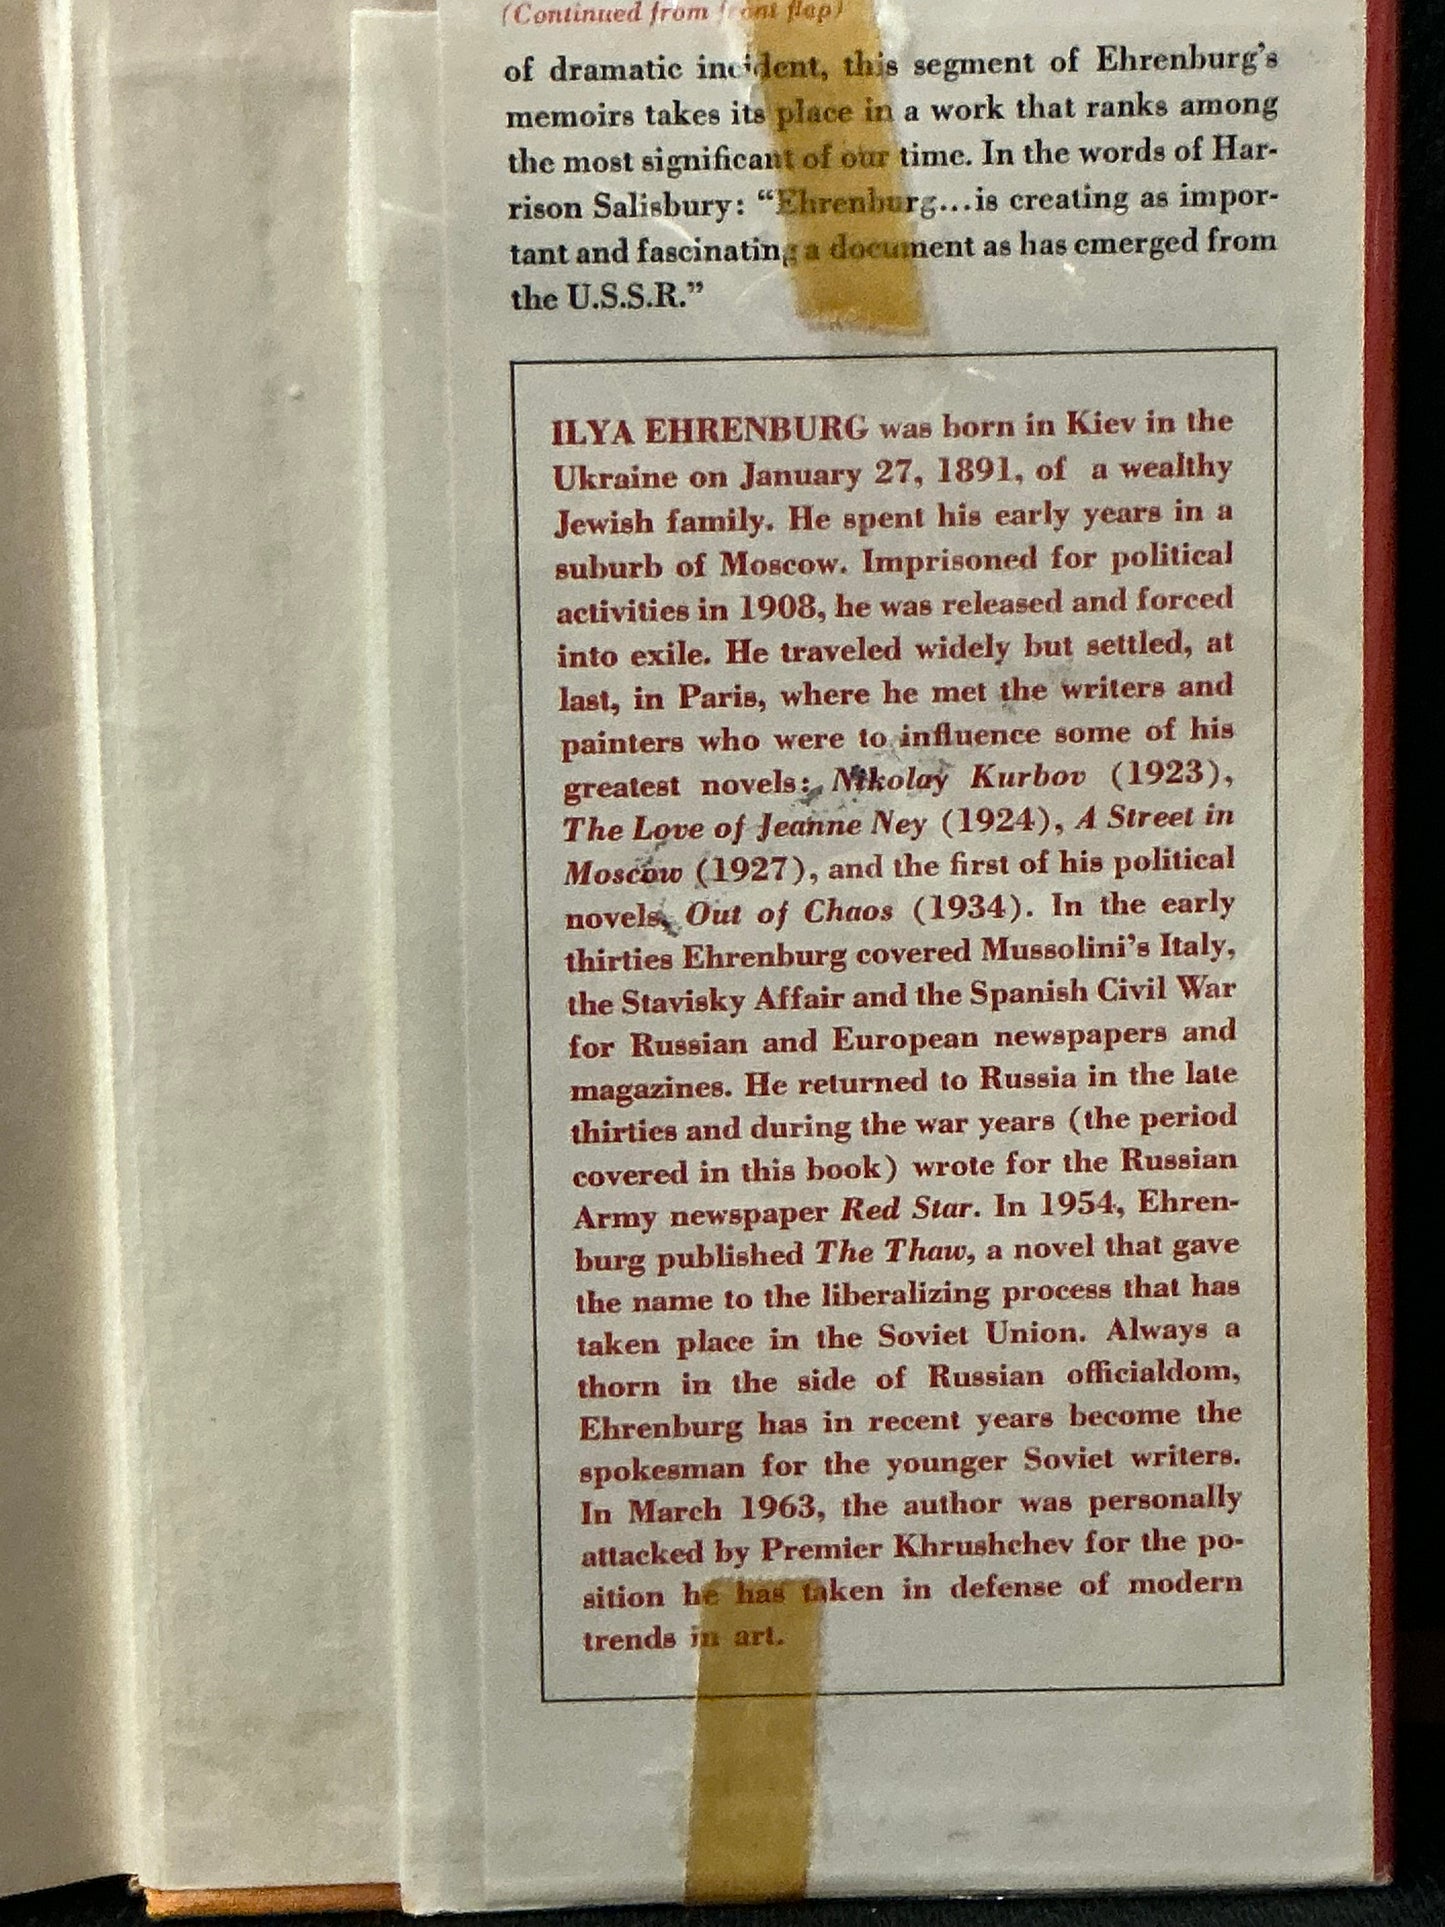 (Continued from front flap)
of dramatic incident, this segment of Ehrenburg's
memoirs takes its place in a work that ranks among
the most significant of our time. In the words of Har-
rison Salisbury: “Ehrenburg...is creating as impor-
tant and fascinating a document as has emerged from
the U.S.S.R.”
ILYA EHRENBURG was born in Kiev in the
Ukraine on January 27, 1891, of a wealthy
Jewish family. He spent his early years in a
suburb of Moscow. Imprisoned for political
activities in 1908, he was released and forced
into exile. He traveled widely but settled, at
last, in Paris, where he met the writers and
painters who were to influence some of his
greatest novels: Nikolay Kurbov (1923),
The Love of Jeanne Ney (1924), A Street in
Moscow (1927), and the first of his political
novels, Out of Chaos (1934). In the early
thirties Ehrenburg covered Mussolini's Italy,
the Stavisky Affair and the Spanish Civil War
for Russian and European newspapers and
magazines. He returned to Russia in the late
thirties and during the war years (the period
covered in this book) wrote for the Russian
Army newspaper Red Star. In 1954, Ehren-
burg published The Thaw, a novel that gave
the name to the liberalizing process that has
taken place in the Soviet Union. Always a
thorn in the side of Russian officialdom,
Ehrenburg has in recent years become the
spokesman for the younger Soviet writers.
In March 1963, the author was personally
attacked by Premier Khrushchev for the po-
sition he has taken in defense of modern
trends in art.